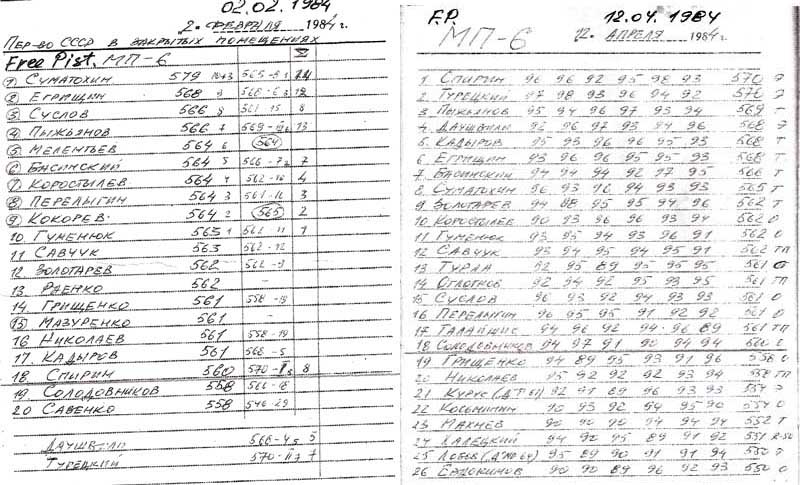 02.02.1984
2. ФЕВРАЛЯ 1984 г.
ПЕР-ВО СССР В ЗАКРЫТЫХ ПОМЕЩЕНИЯХ
Free Pist. МП-6
1 СУМАТОХИН 579
2 ЕГРИЩИН 568
3 СУСЛОВ 566 8
4 ПЫЖЬЯНОВ 566 7 13
5 МЕЛЕНТЬЕВ 564 6 564
6 БАСИНСКИЙ 564 5 7
7 КОРОСТЫЛЕВ 564 4 4
8 ПЕРЕЛЫГИН 564 3 3
9 КОКОРЕВ 564 2 565 2
10 ГУМЕНЮК 563 1 1
11 САВЧУК 563
12 ЗОЛОТАРЕВ 562
13 РАЕНКО 562 -
14 ГРИЩЕНКО 561
15 МАЗУРЕНКО 561 -
16 НИКОЛАЕВ 561 558-19
17 КАДЫРОВ 561 568-5
18 СПИРИН 560 8
19 СОЛОДОВНИКОВ 558 560-18
20 САВЕНКО 558 546-29
ДАУШВИЛИ 5
ТУРЕЦКИЙ 7
F.P. 12.04.1984
МП-6 12. АПРЕЛЯ 1984 г.
1 СПИРИН 96 96 92 95 98 93 570 Э
2 ТУРЕЦКИЙ 97 98 93 96 94 92 570 Э
3 ПЫЖЬЯНОВ 95 94 96 97 93 94 569 Т
4 ДАУШВИЛИ 92 96 97 93 94 96 568 Э
5 КАДЫРОВ 95 93 96 96 95 93 568 Т
6 ЕГРИЩИН 93 96 96 95 95 93 568 Т
7 БАСИНСКИЙ 94 94 94 92 97 95 566 Т
8 СУМАТОХИН 96 93 96 94 93 93 565 Т
9 ЗОЛОТАРЕВ 94 88 95 95 94 96 562 Т
10 КОРОСТЫЛЕВ 90 93 96 96 93 94 562 О
11 ГУМЕНЮК 93 95 94 93 96 91 562 О
12 САВЧУК 93 94 95 94 95 91 562 ТП
13 ТУРЛА 92 95 89 95 95 95 561
14 ОГЛОГКОВ 92 94 92 95 93 95 561 ТП
15 СУСЛОВ 96 93 92 94 93 93 561 О
16 ПЕРЕЛЫГИН 96 95 95 91 92 92 561 О
17 ТАЛАЙШИС 94 96 92 94 96 89 561 ТП
18 СОЛОДОВНИКОВ 94 97 91 90 94 94 560
19 ГРИЩЕНКО 94 89 95 93 91 96 558 О
20 НИКОЛАЕВ 95 92 92 92 93 94 558 ТП
21 КУРУС 92 91 89 96 93 93 554 Э
22 КОСЬМИНИН 90 93 92 94 95 90 554 О
23 МАХНЕВ 90 90 90 94 94 94 552 Т
24 ХАЛЕЦКИЙ 94 90 95 89 91 92 551
25 ЛОБОВ 95 89 90 91 91 94 550 Э
26 ЕВДОКИМОВ 90 90 89 96 92 93 550 О